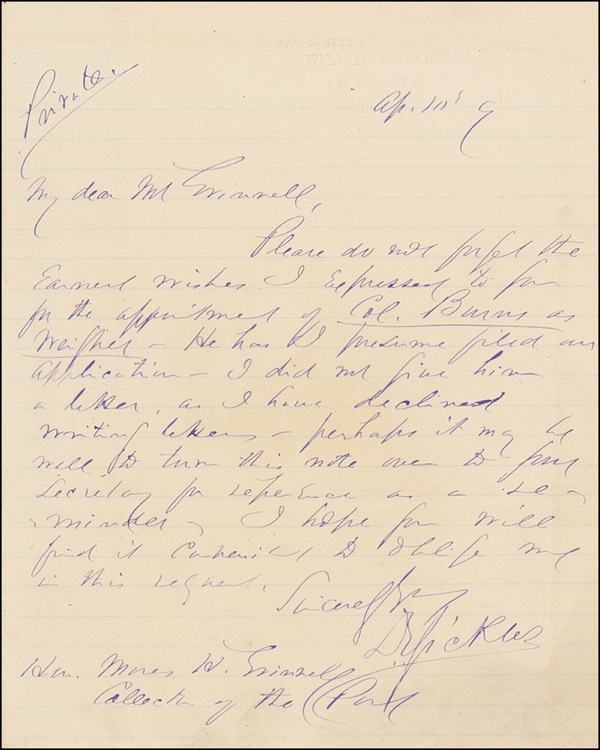 Private
Ap. 10 9
My dear Mr Grinnell,
Please do not forget the
Earnest wishes I expressed to you
for the appointment of Col. Burns as
Weigher – He has I presume filed an
application – I did not give him
a letter, as I have declined
writing letters – perhaps it may be
well to turn this note over to your
Secretary for reference as a re-
minder – I hope you will
find it convenient to oblige me
in this request.
Sincerely Yrs
D Sickles
Hon. Moses H. Grinnell
Collector of the Port